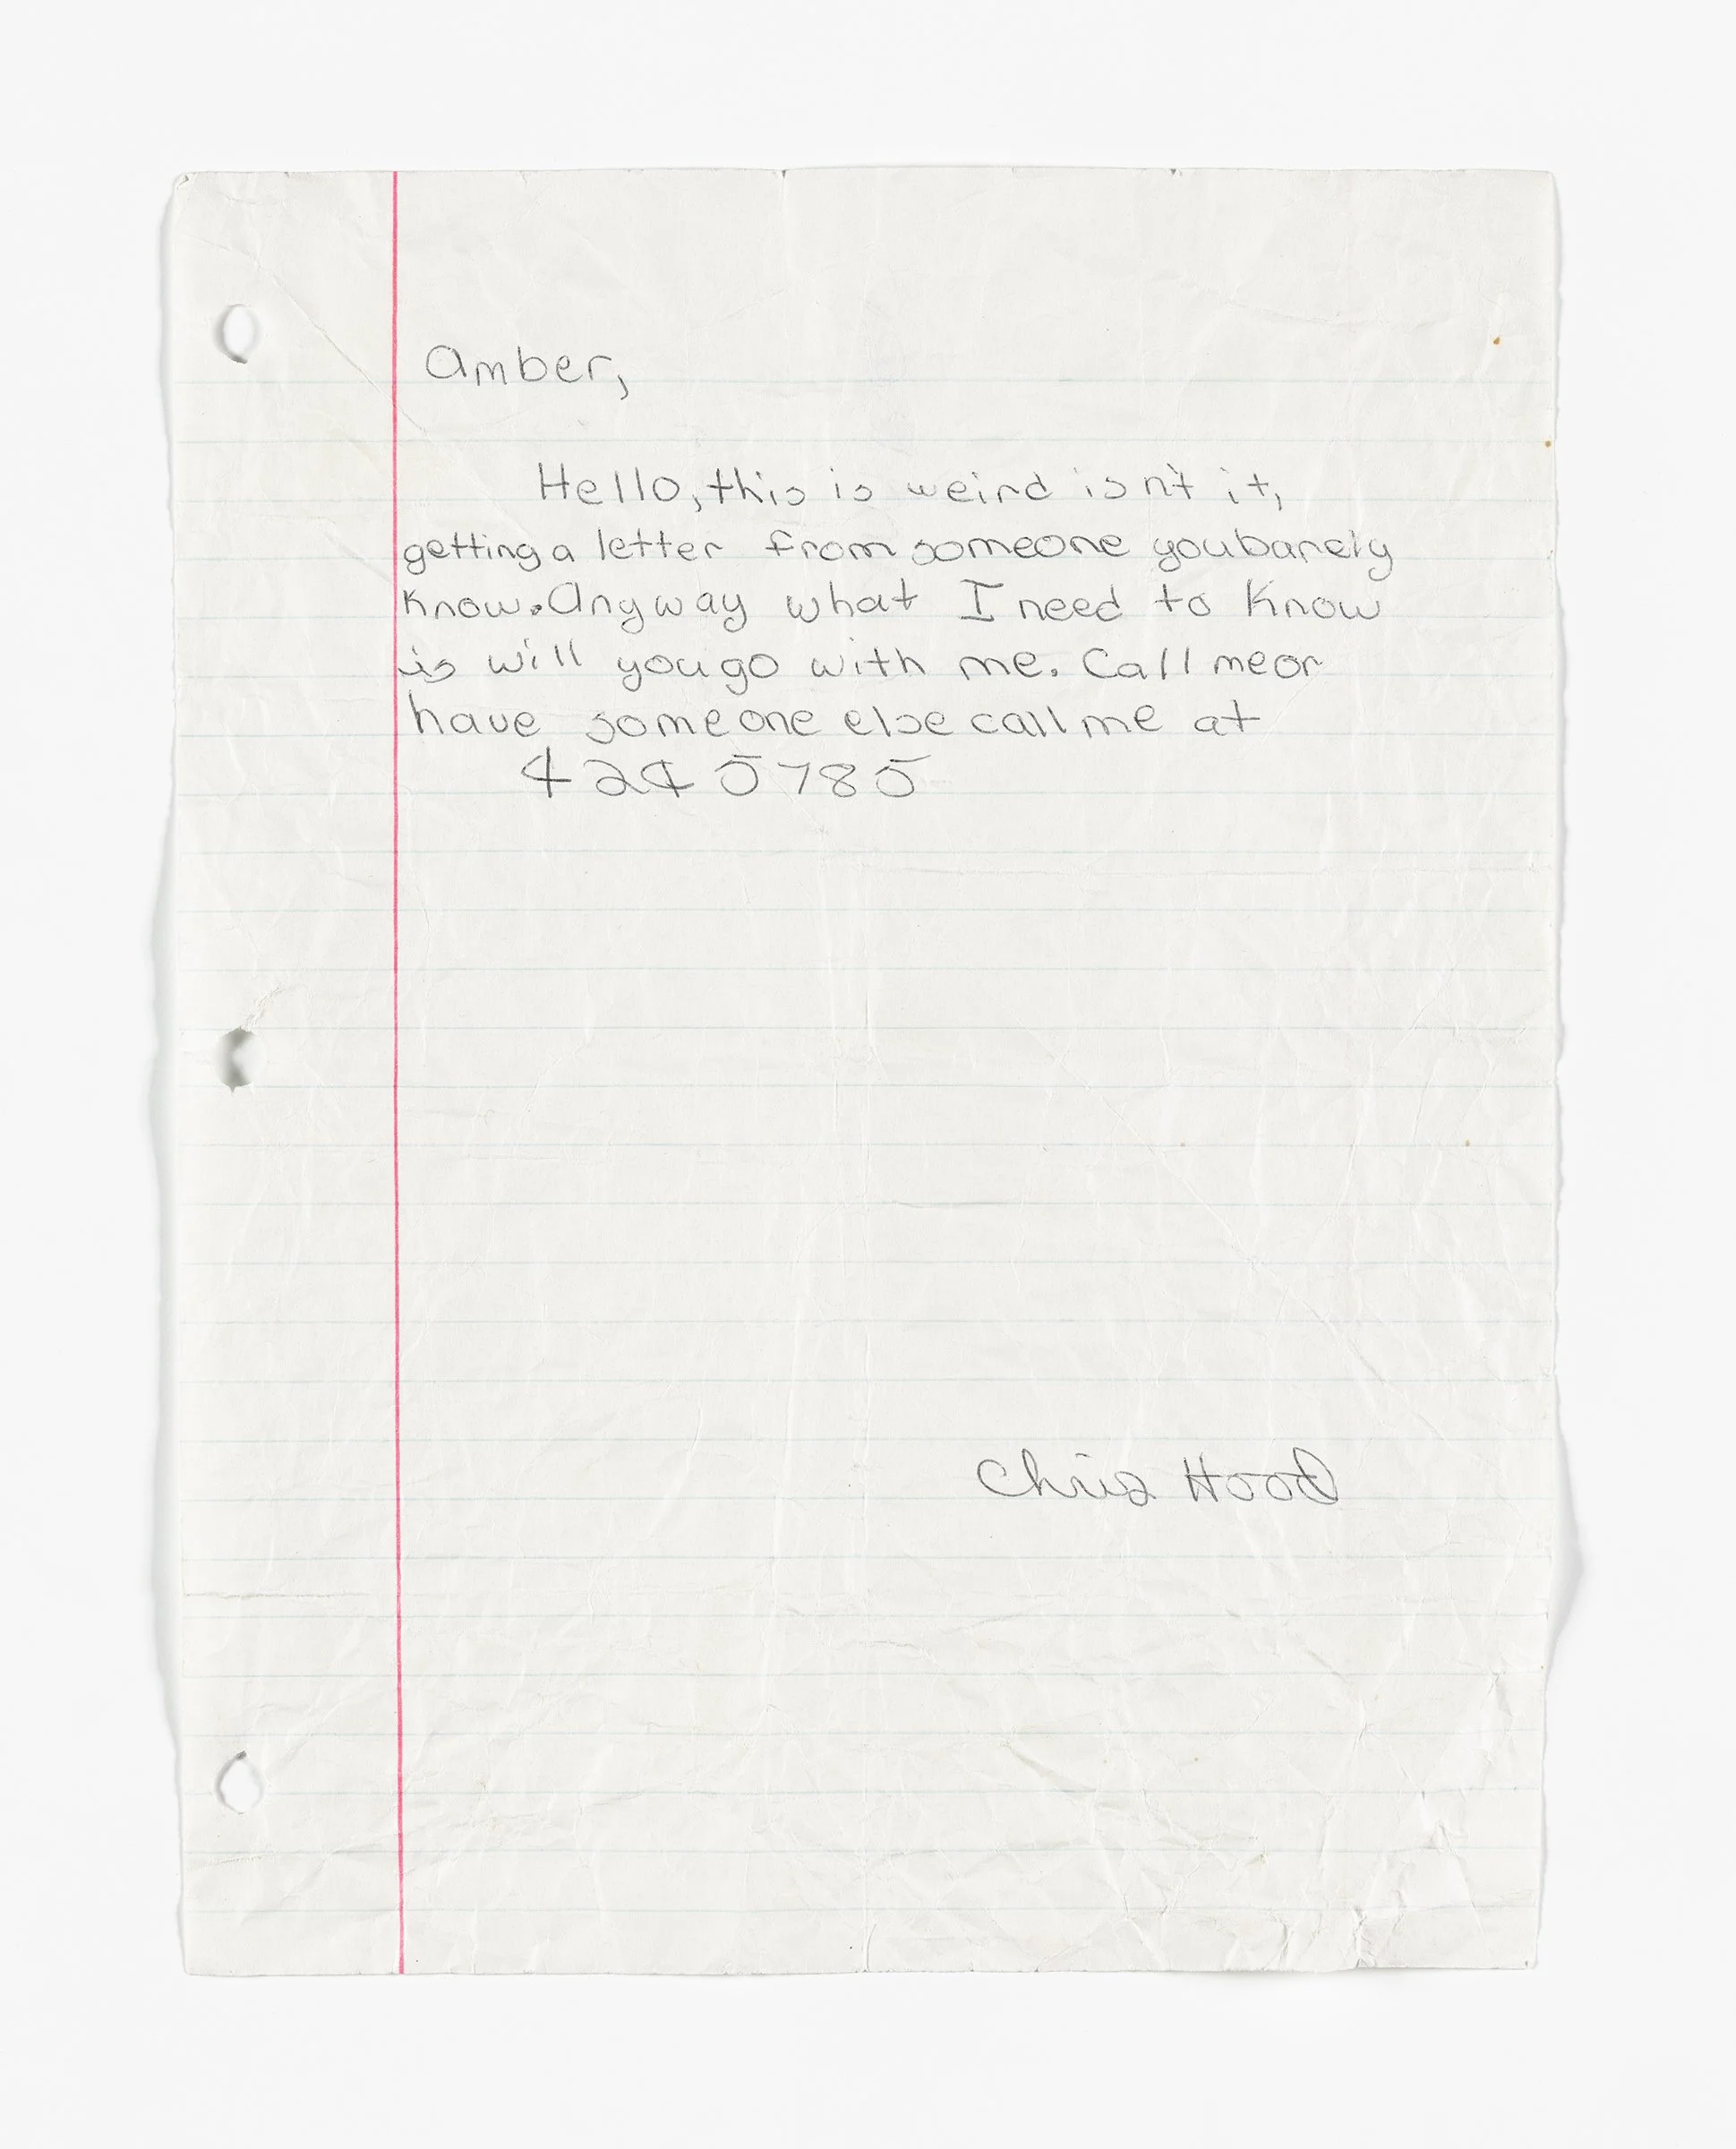 Amber,
Hello, this is weird isn't it,
getting a letter from someone you barely
know. Anyway what I need to know
is will you go with me. Call me or
have someone else call me at
4245785
Chris Hood